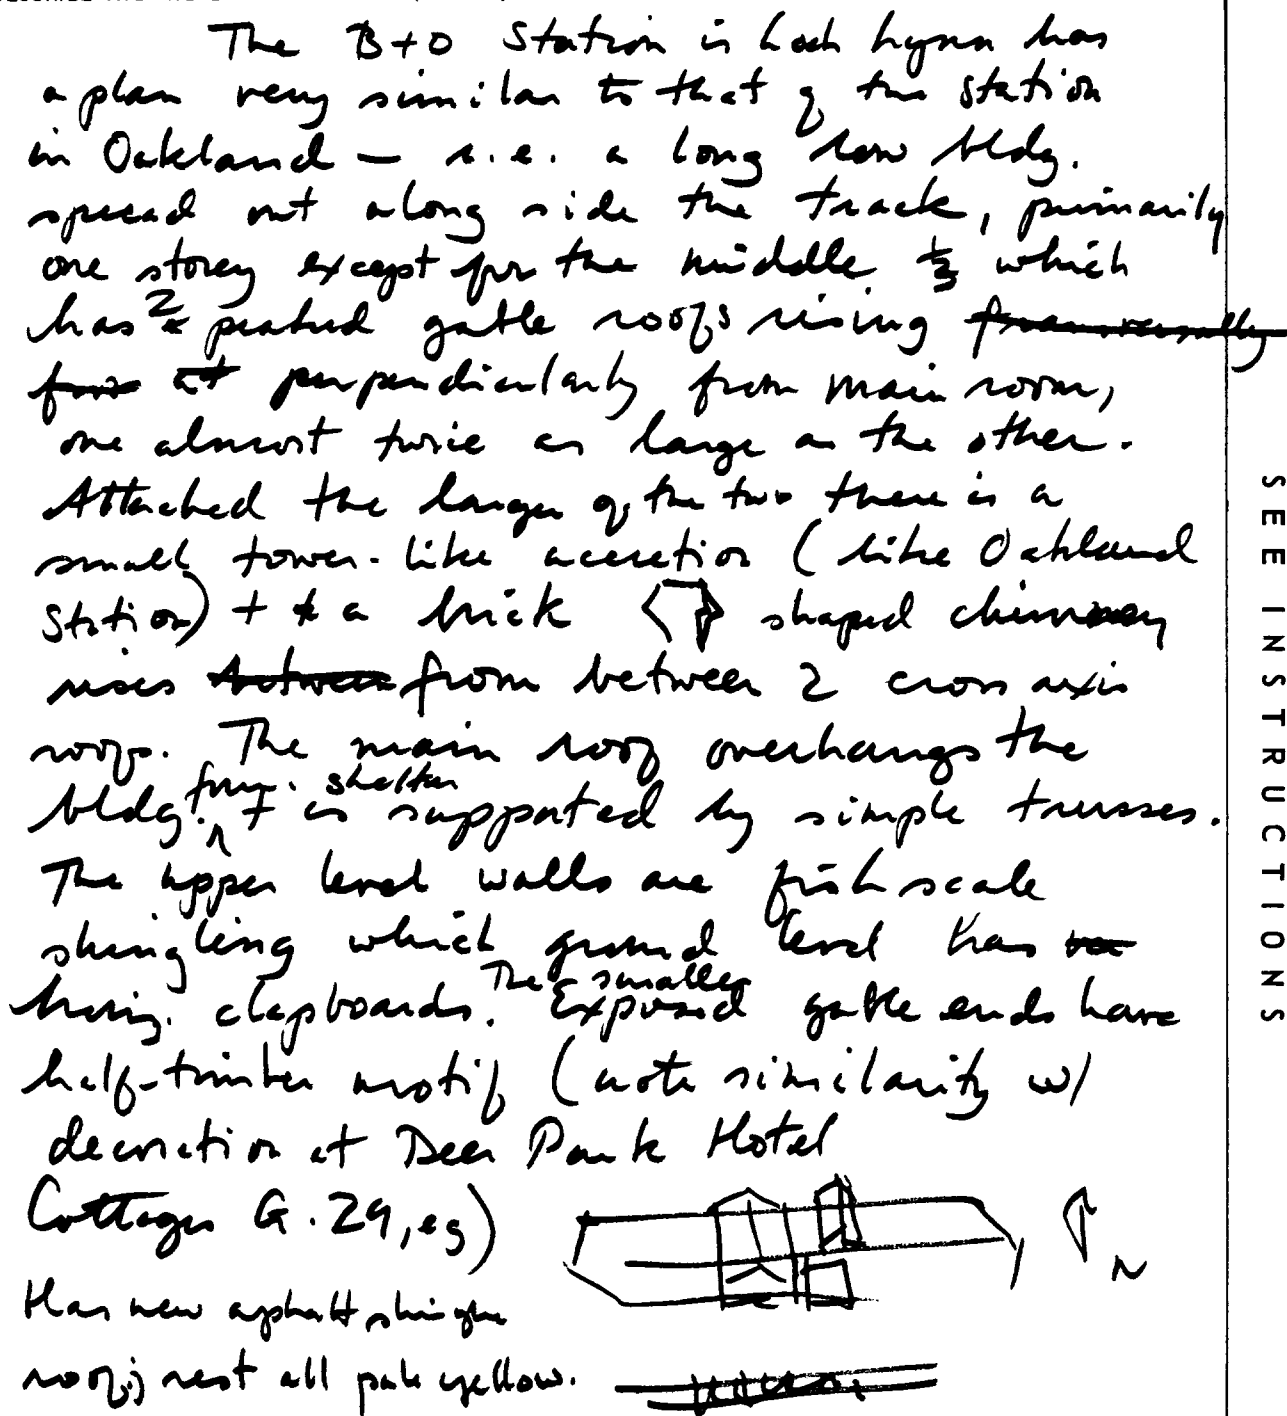 The B+O Station in Loch Lynn has
a plan very similar to that of the station
in Oakland — i.e. a long low bldg.
spread out along side the track, primarily
one storey except for the middle 1/3 which
has 2 peaked gable roofs rising transversally
from at perpendicularly from main room,
one almost twice as large as the other.
Attached the larger of the two there is a
small tower-like accretion (like Oakland
Station) + a brick shaped chimney
rises between from between 2 cross axis
roofs. The main roof overhangs the
bldg. for shelter + is supported by simple trusses.
The upper level walls are fish scale
shingling which ground level has
horiz. clapboards. The smaller Exposed gable ends have
half-timber motif (note similarity w/
decoration at Deer Park Hotel
Cottages G.29, eg)
N
Has new asphalt shingle
roof; rest all pale yellow.
SEE INSTRUCTIONS